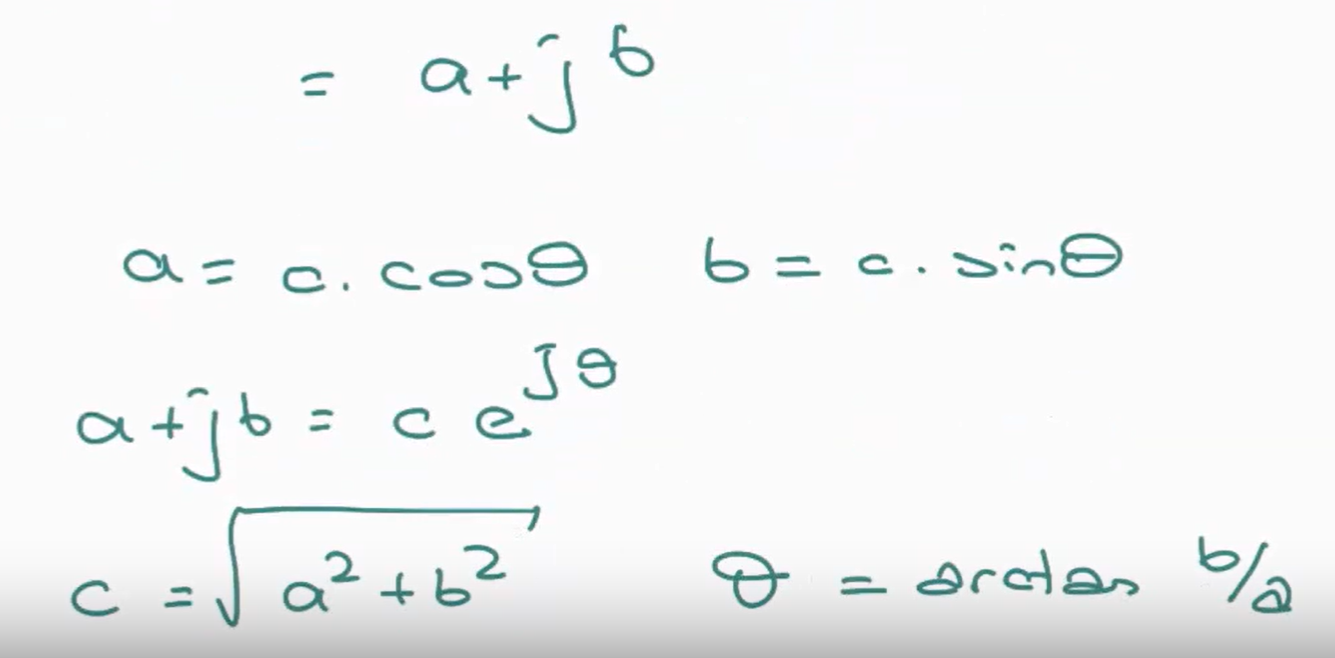 = a + j b
a = c . cosθ b = c . sinθ
a + j b = c e^jθ
c = √a² + b² θ = arctan b/a